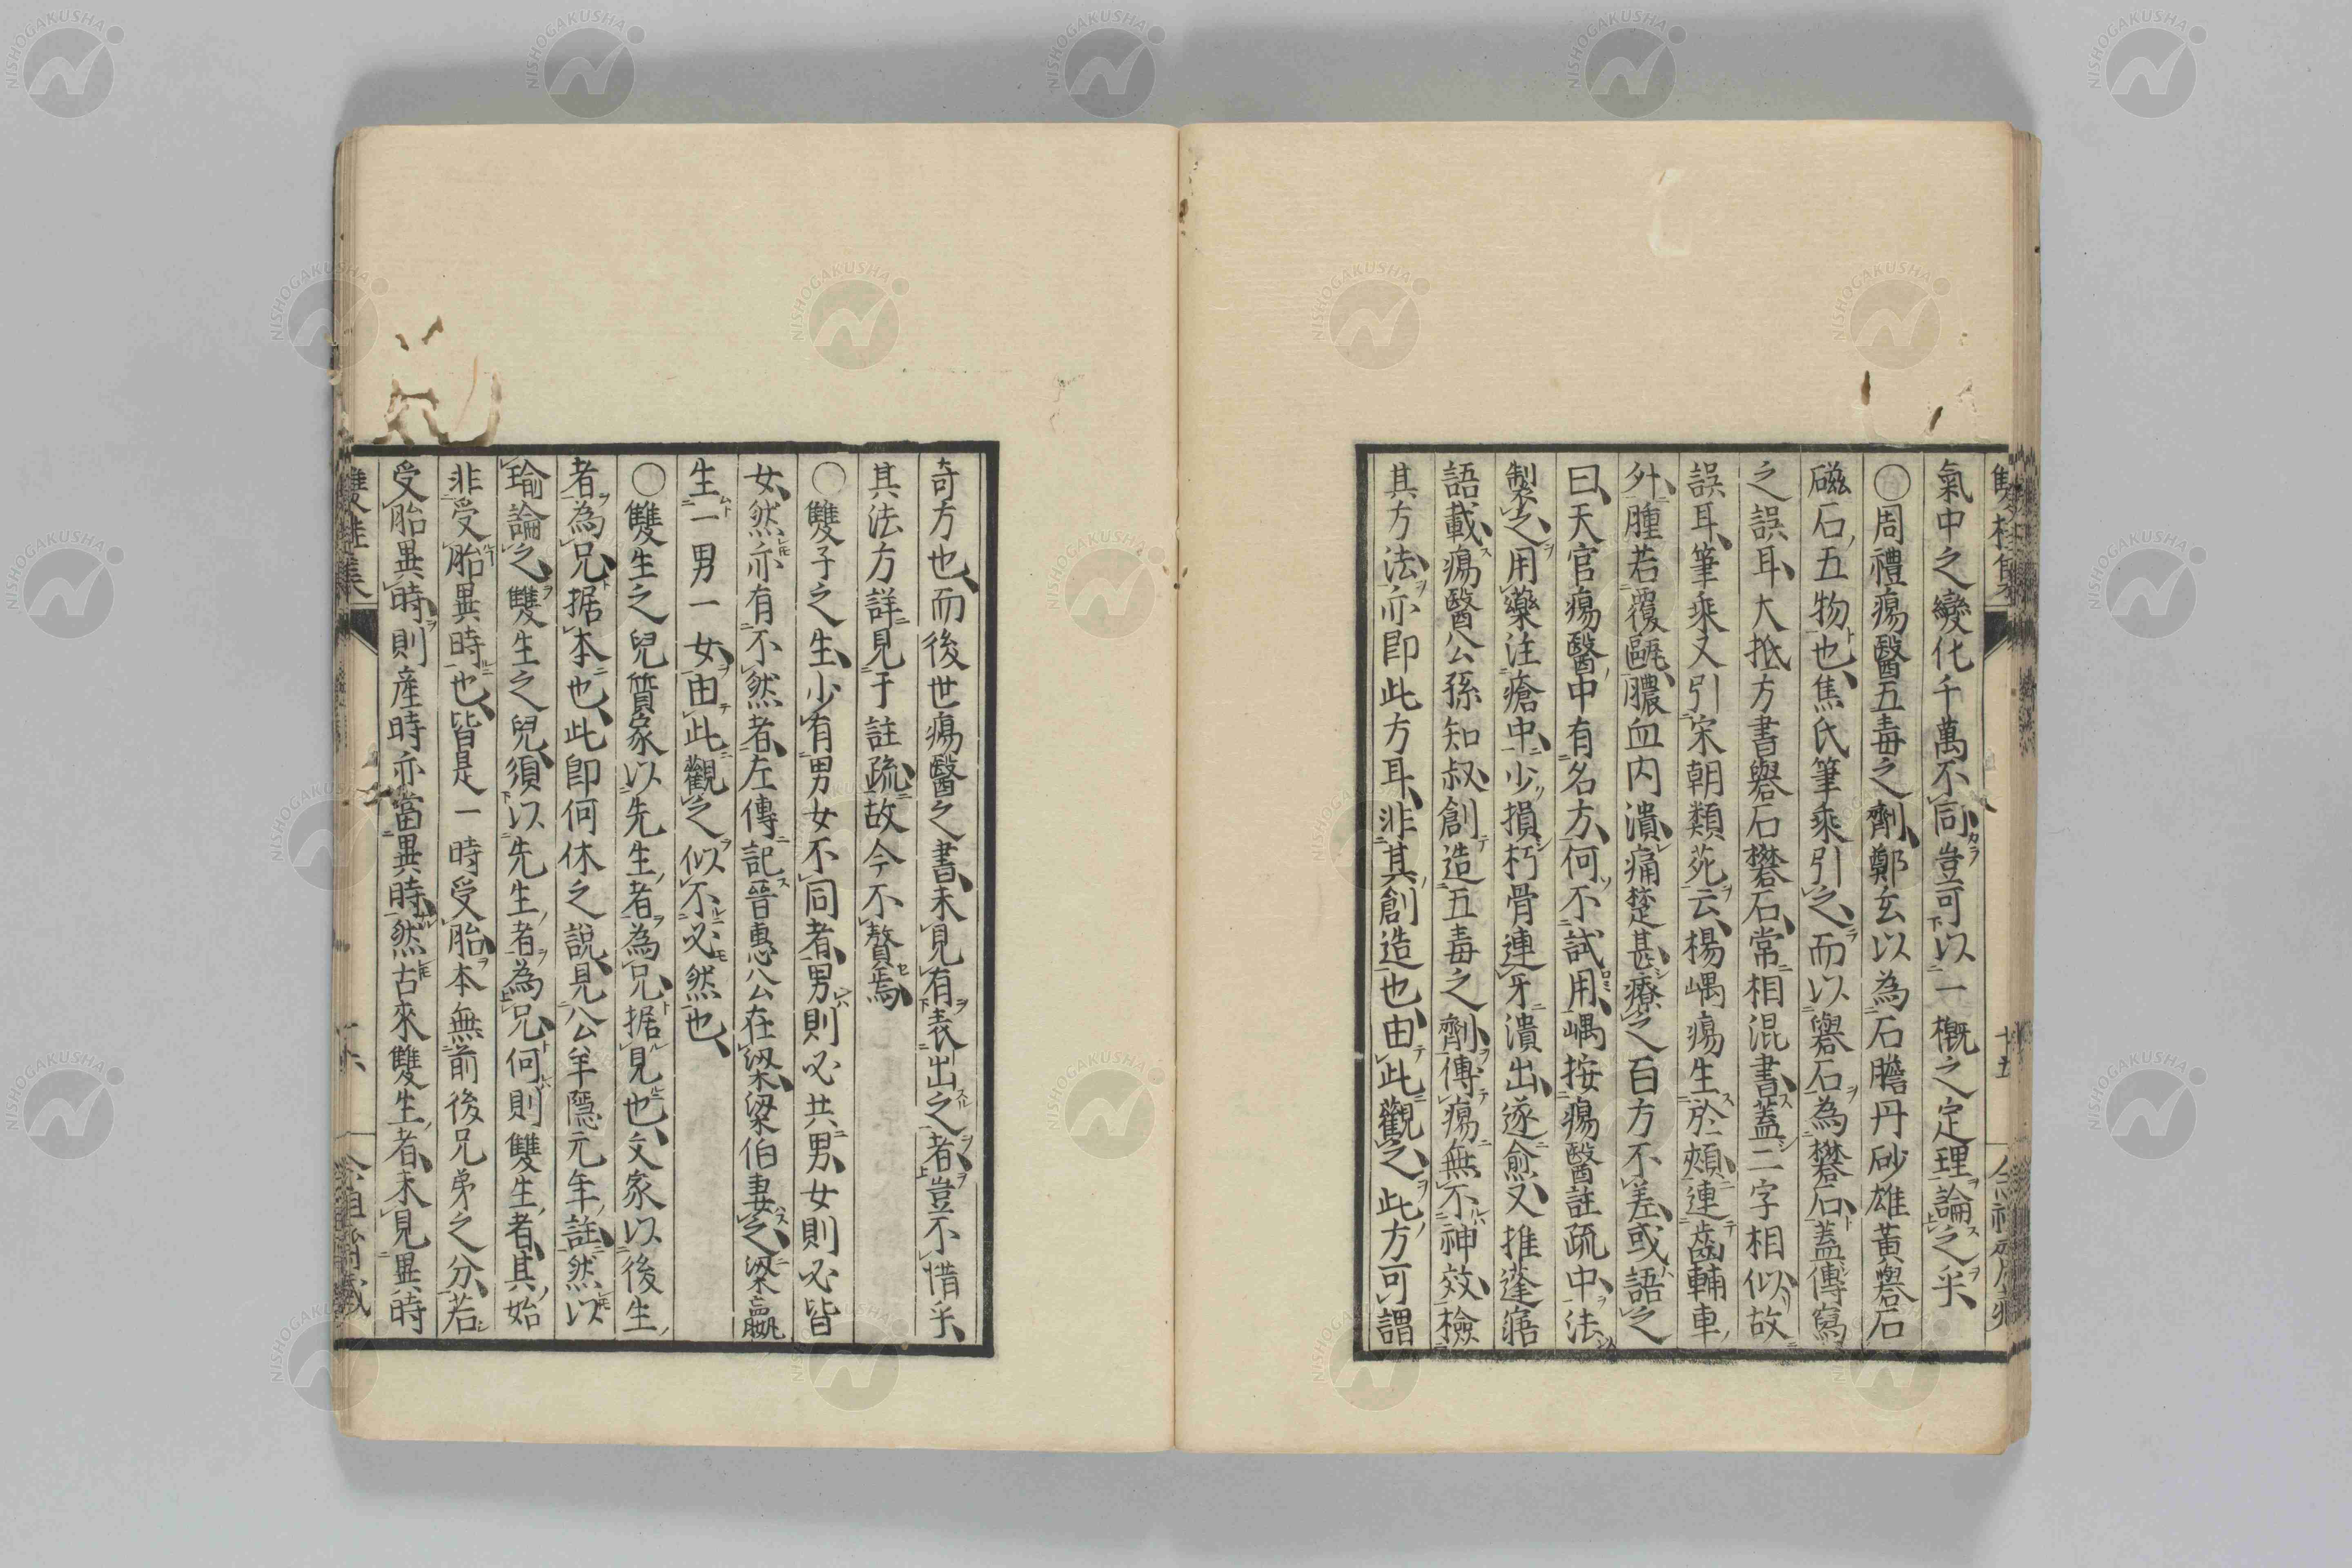 氣中之變化千萬不同豈可以一概之定理論之乎
〇周禮瘍醫五毒之劑鄭玄以為石膽丹砂雄黃礜石
磁石五物也焦氏筆乘引之而以礜石為礬石蓋傳寫
之誤耳大抵方書礜石礬石常相混書蓋二字相似故
誤耳筆乘又引宋朝類苑云楊嵎瘍生於頰連齒輔車
外腫若覆甌膿血內潰痛楚甚療之百方不差或語之
曰天官瘍醫中有名方何不試用嵎按瘍醫註疏中法
製之用藥注瘡中少損朽骨連牙潰出遂愈又推蓬寤
語載瘍醫公孫知叔創造五毒之劑傳瘍無不神效檢
其方法亦即此方耳非其創造也由此觀之此方可謂
奇方也而後世瘍醫之書未見有表出之者豈不惜乎
其法方詳見于註疏故今不贅焉
〇雙子之生少有男女不同者男則必共男女則必皆
女然亦有不然者左傳記晉惠公在梁梁伯妻之梁嬴
生一男一女由此觀之似不必然也
〇雙生之兒質家以先生者為兄据見也文家以後生
者為兄据本也此即何休之說見公羊隱元年註然以
瑜論之雙生之兒須以先生者為兄何則雙生者其始
非受胎異時也皆是一時受胎本無前後兄弟之分若
受胎異時則産時亦當異時然古來雙生者未見異時
NISHOGAKUSHA